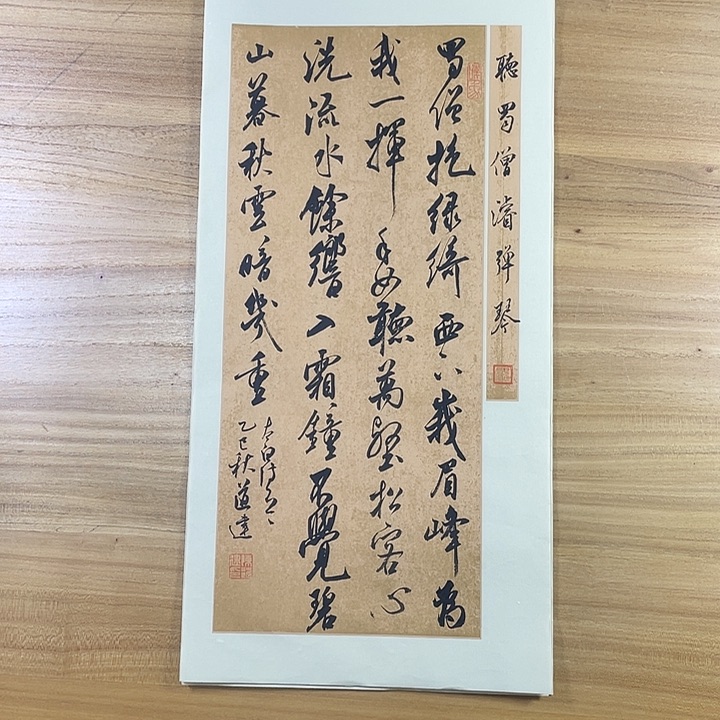 聽蜀僧濬弹琴
蜀僧抱緑綺西下峩眉峰為
我一揮手如聽萬壑松客心
洗流水餘響入霜鐘不覺碧
山暮秋雲暗幾重
太白诗
乙巳秋